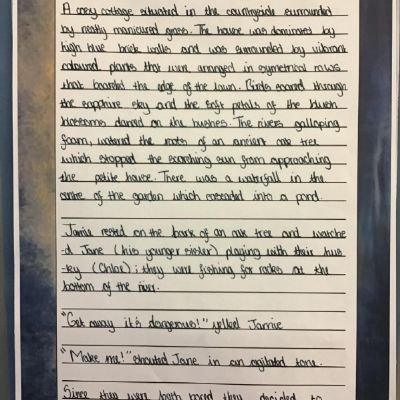 A cosy cottage situated in the countryside surrounded
by neatly manicured grass. The house was dominated by
high blue brick walls and was surrounded by vibrant
coloured plants that were arranged in symetrical rows
that boarded the edge of the lawn. Birds soared through
the sapphire sky and the soft petals of the blush
blossoms danced on the bushes. The rivers galloping
foam, watered the roots of an ancient oak tree
which stopped the scorching sun from approaching
the petite house. There was a waterfall in the
centre of the garden which cascaded into a pond.
Jamie rested on the bark of an oak tree and watche-
d Jane (his younger sister) playing with their hus-
ky (Chloe); they were fishing for rocks at the
bottom of the river.
"Get away it's dangerous!" yelled Jamie
"Make me!" shouted Jane in an agitated tone.
Since they were both bored they decided to